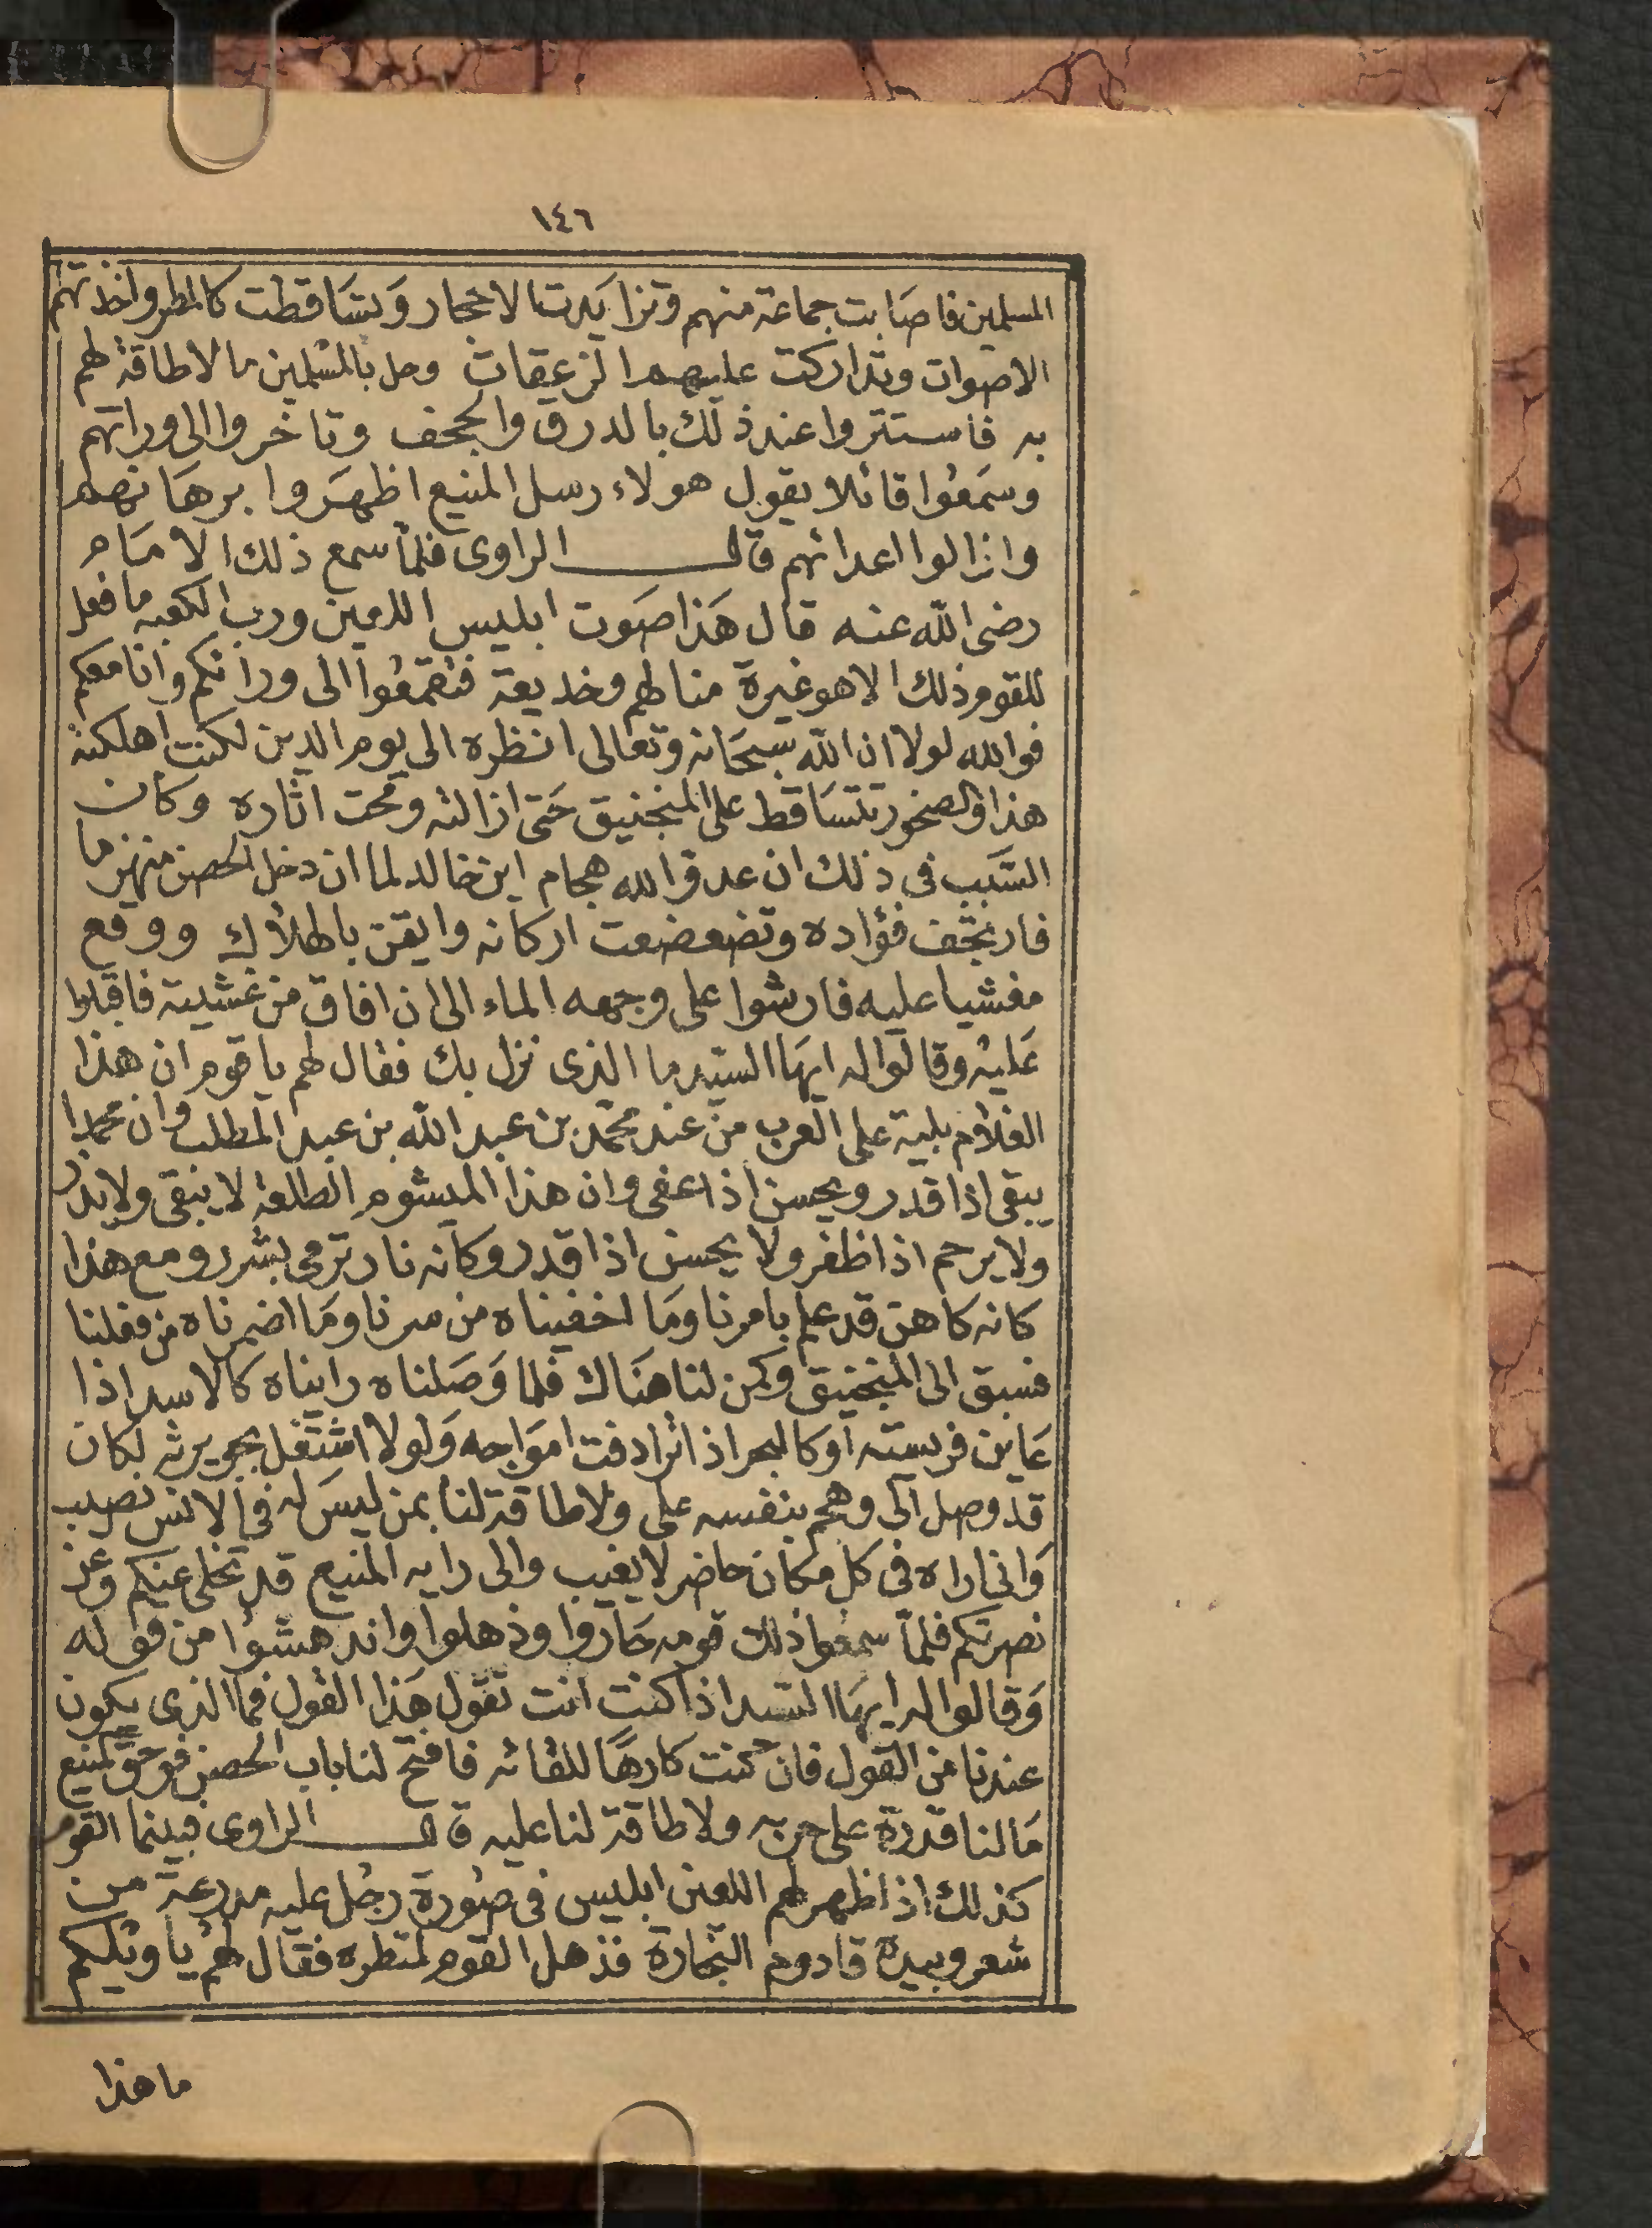 ١٤٦
المسلمين فاصَابت جماعة منهم وتزايَدت الاحجار وَتسَاقطت كالمطر واخذتهم
الاصوات وتداركت عليهم الزعقات وحل بالمسْلمين ما لا طاقة لهم
به فاستتروا عند ذلك بالدرق والجحف وتاخروا الى ورائهم
وسمَعُوا قائلا يقول هولاء رسل المنيع اظهَروا برهَانهم
وازالوا اعدائهم قال الراوى فلما سمع ذلك الامَام
رضى الله عنه قال هَذا صَوت ابليس اللعين ورب الكعبه ما فعل
للقوم ذلك الا هو غيرة منا لهم وخديعة فتقمعُوا الى ورائكم وانا معكم
فوالله لولا ان الله سبحَانه وتعالى انظره الى يوم الدين لكنت اهلكته
هذا والصخور تتسَاقط على المنجنيق حَتى ازالته ومحت اثاره وكان
السَبب فى ذلك ان عدو الله هجام ابن خالد لما ان دخل الحصن منهزما
فارتجف فؤاده وتضعضعت اركانه وايقن بالهلاك ووقع
مغشيا عليه فارشوا على وجهه الماء الى ان افاق من غشيته فاقبلوا
عَليْه وقالوا له ايهَا السيد ما الذى نزل بك فقال لهم يا قوم ان هذا
الغلام بلية على العرب من عند محمد بن عبد الله بن عبد المطلب وان محمدا
يبقى اذا قدر ويحسن اذا عفى وان هذا الميشوم الطلعة لا يبقى ولا يذر
ولا يرحم اذا ظفر ولا يحسن اذا قدر وكانه نار ترمى بشرر ومع هذا
كانه كاهن قد علم بامرنا ومَا اخفيناه من سرنا ومَا اضمرناه من فعلنا
فسبق الى المنجنيق وكمن لنا هنَاك فلما وَصَلناه رايناه كالاسد اذا
عَاين فريسته اوكالبحر اذا ترادفت امَواجه وَلولا اشتغل بجويرثه لكان
قد وصل الى وهجم بنفسه على ولا طاقة لنا بمن ليسَ له فى الانس نصيب
وَانى اراه فى كل مكان حاضر لا يغيب والى رايه المنيع قد تخلى عنكم وعن
نصرتكم فلما سمعوا ذلك قومه حَاروا وذهلوا واندهشوا من قوله
وَقالوا له ايهَا السيد اذا كنت انت تقول هَذا القول فما الذى يكون
عندنا من القول فان كنت كارهًا للقائه فافتح لنا باب الحصن فوحق المنيع
مَا لنا قدرة على حربه ولا طاقة لنا عليه قال الراوى فبينما القوم
كذلك اذ اظهر لهم اللعين ابليس فى صُورة رجُل عليه مدرعة من
شعر وبيده قادوم النجارة فذهل القوم لمنظره فقال لهُم يا ويْلكم
ما هذا